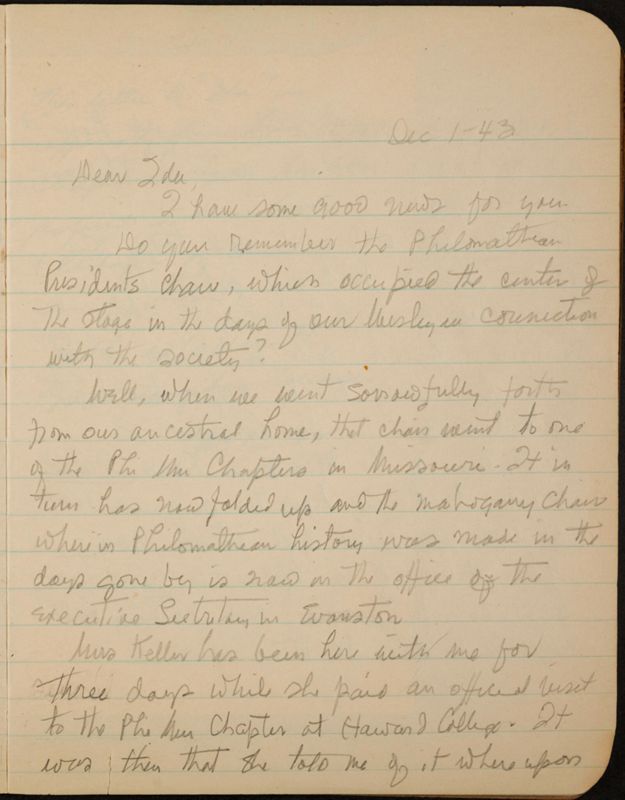 Dec 1-43
Dear Ida,
I have some good news for you
Do you remember the Philomathean
Presidents Chair, which occupied the center of
The stage in the days of our Wesleyan connection
with the society?
Well, when we went sorrowfully forth
from our ancestral home, that chair went to one
of the Phi Mu Chapters in Missouri. It in
turn has now folded up and the mahogany chair
wherein Philomathean history was made in the
days gone by is now in the office of the
executive Secretary in Evanston
Mrs Keller has been here with me for
three days while she paid an official visit
to the Phi Mu Chapter at Howard College. It
was then that she told me of it whereupon